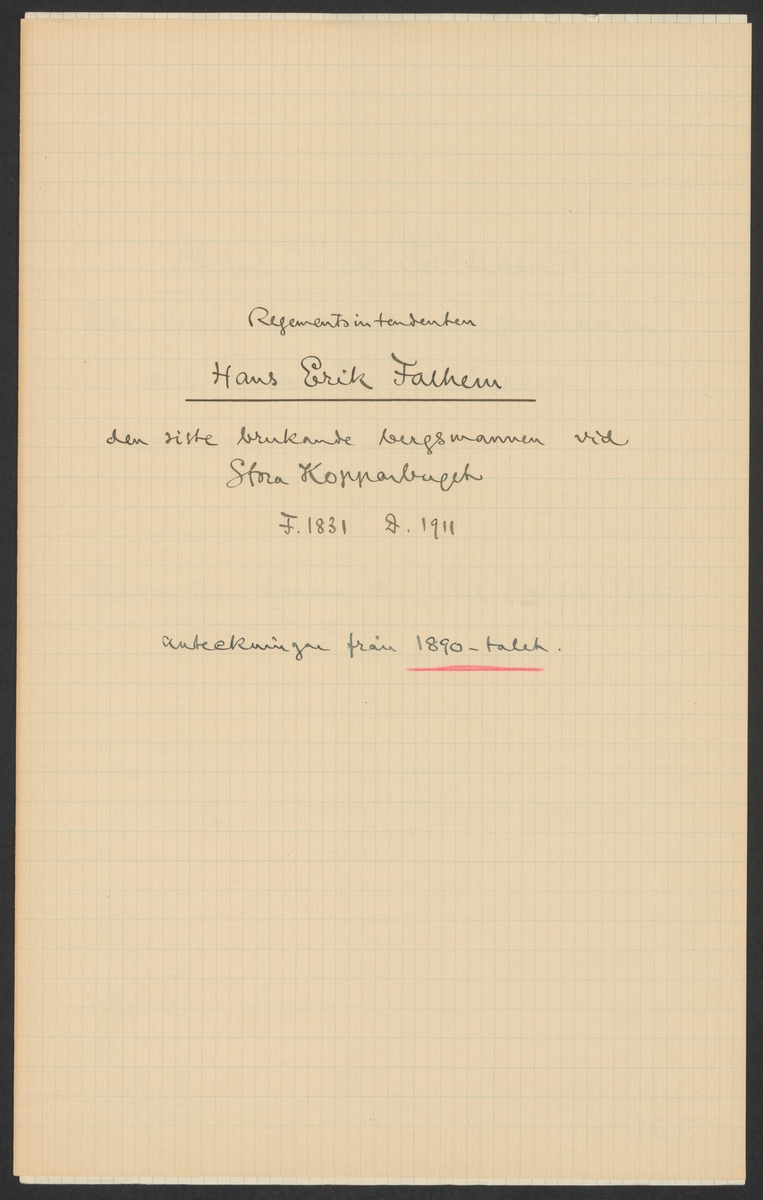 Regementsintendenten
Hans Erik Falhem
den siste brukande bergsmannen vid
Stora Kopparberget
F. 1831 D. 1911
anteckningar från 1890-talet.